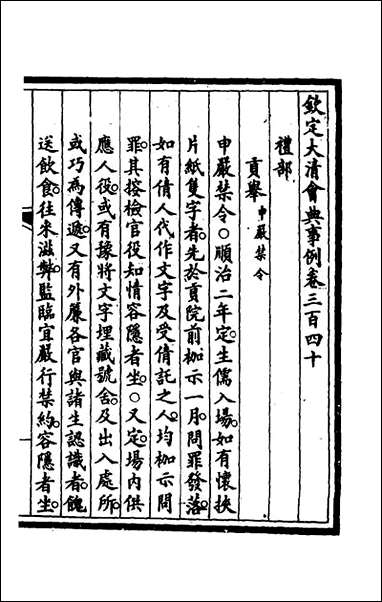 欽定大清會典事例卷三百四十
禮部
貢舉申嚴禁令
申嚴禁令○順治二年定生儒入場。如有懷挾
片紙隻字者。先於貢院前枷示一月。問罪發落。
如有倩人代作文字及受倩託之人。均枷示問
罪。其搜檢官役知情容隱者坐。○又定。場內供
應人役。或有豫將文字埋藏號舍。及出入處所。
或巧為傳遞。又有外簾各官與諸生認識者。餽
送飲食。往來滋弊。監臨宜嚴行禁約。容隱者坐。